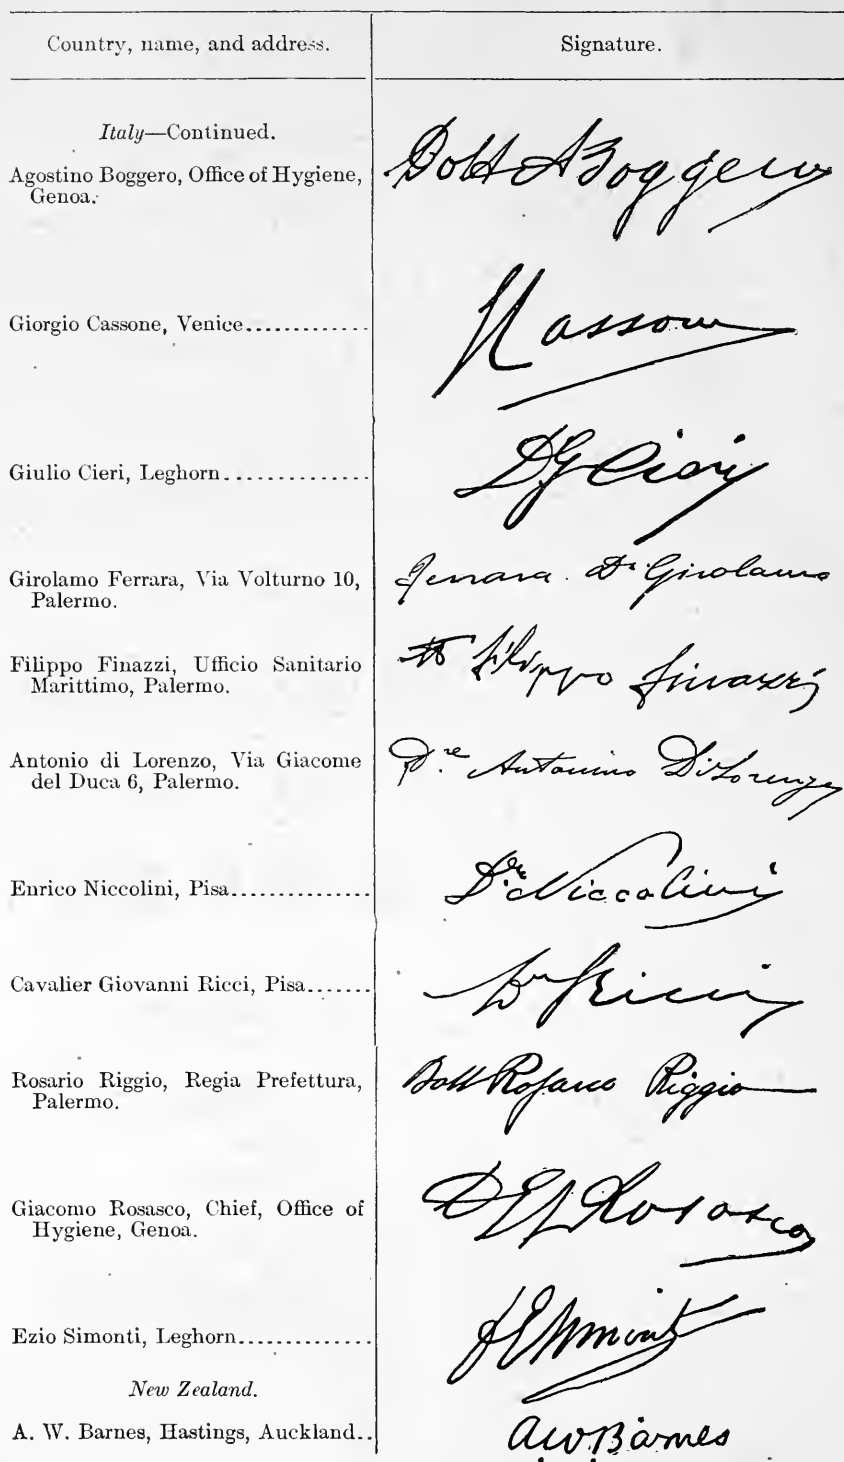 Country, name, and address. Signature.
Italy—Continued.
Agostino Boggero, Office of Hygiene, Genoa.
Dott A Boggero
Giorgio Cassone, Venice.............
Cassone
Giulio Cieri, Leghorn..............
D G Cieri
Girolamo Ferrara, Via Volturno 10,
Palermo.
Ferrara Dr Girolamo
Filippo Finazzi, Ufficio Sanitario
Marittimo, Palermo.
Filippo Finazzi
Antonio di Lorenzo, Via Giacome
del Duca 6, Palermo.
D.re Antonino Di Lorenzo
Enrico Niccolini, Pisa..............
Dre Niccolini
Cavalier Giovanni Ricci, Pisa.......
Dr Ricci
Rosario Riggio, Regia Prefettura,
Palermo.
Dott Rosario Riggio
Giacomo Rosasco, Chief, Office of
Hygiene, Genoa.
Rosasco
Ezio Simonti, Leghorn.............
New Zealand.
A. W. Barnes, Hastings, Auckland..
AWBarnes